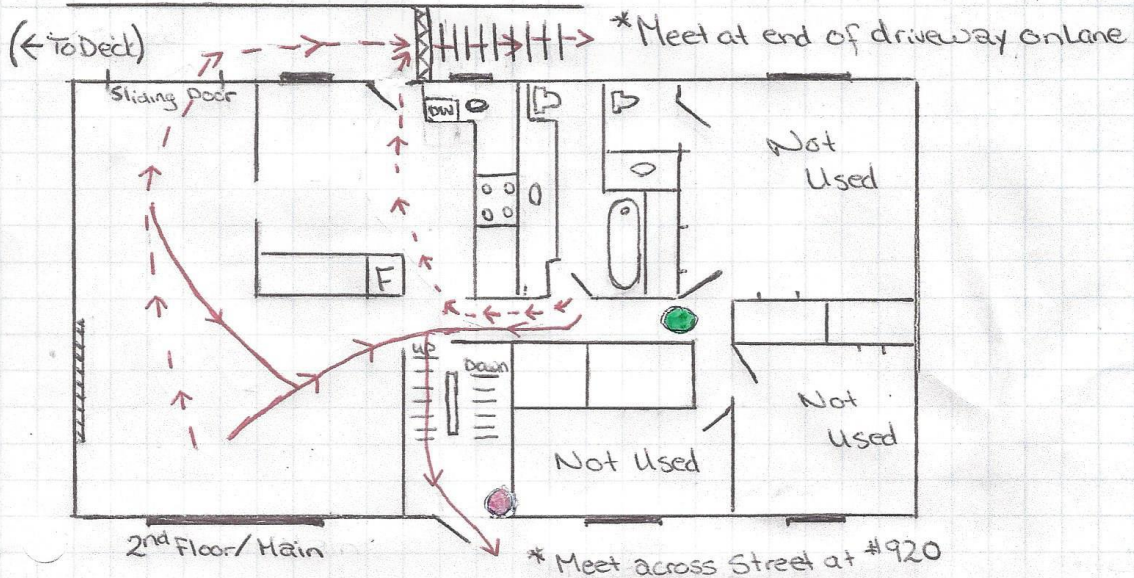 (← To Deck)
*Meet at end of driveway on Lane
Sliding Door
DW
Not
Used
F
UP
Down
Not
Used
Not Used
2nd Floor/Main
* Meet across Street at #920